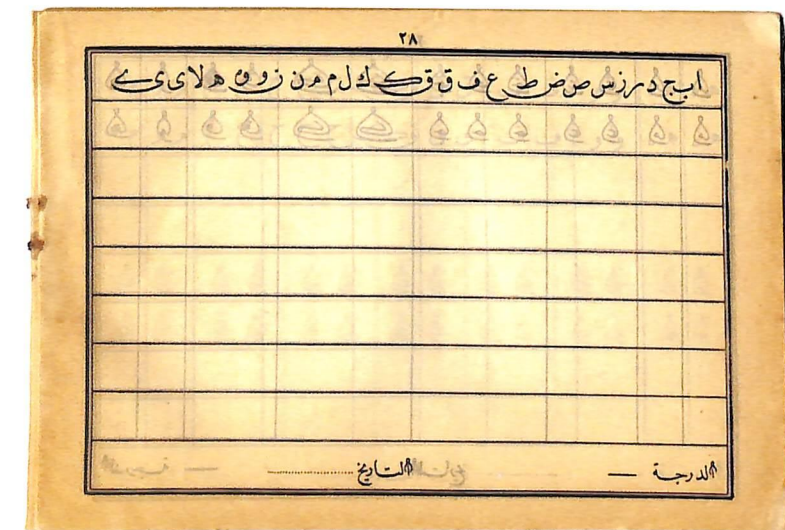 ٢٨
ا ب ج د ر ز س ص ض ط ع ف ق ق ك ك ل م م ن ز و و ه ه لا ى ى ے
الدرجة — التاريخ ..............